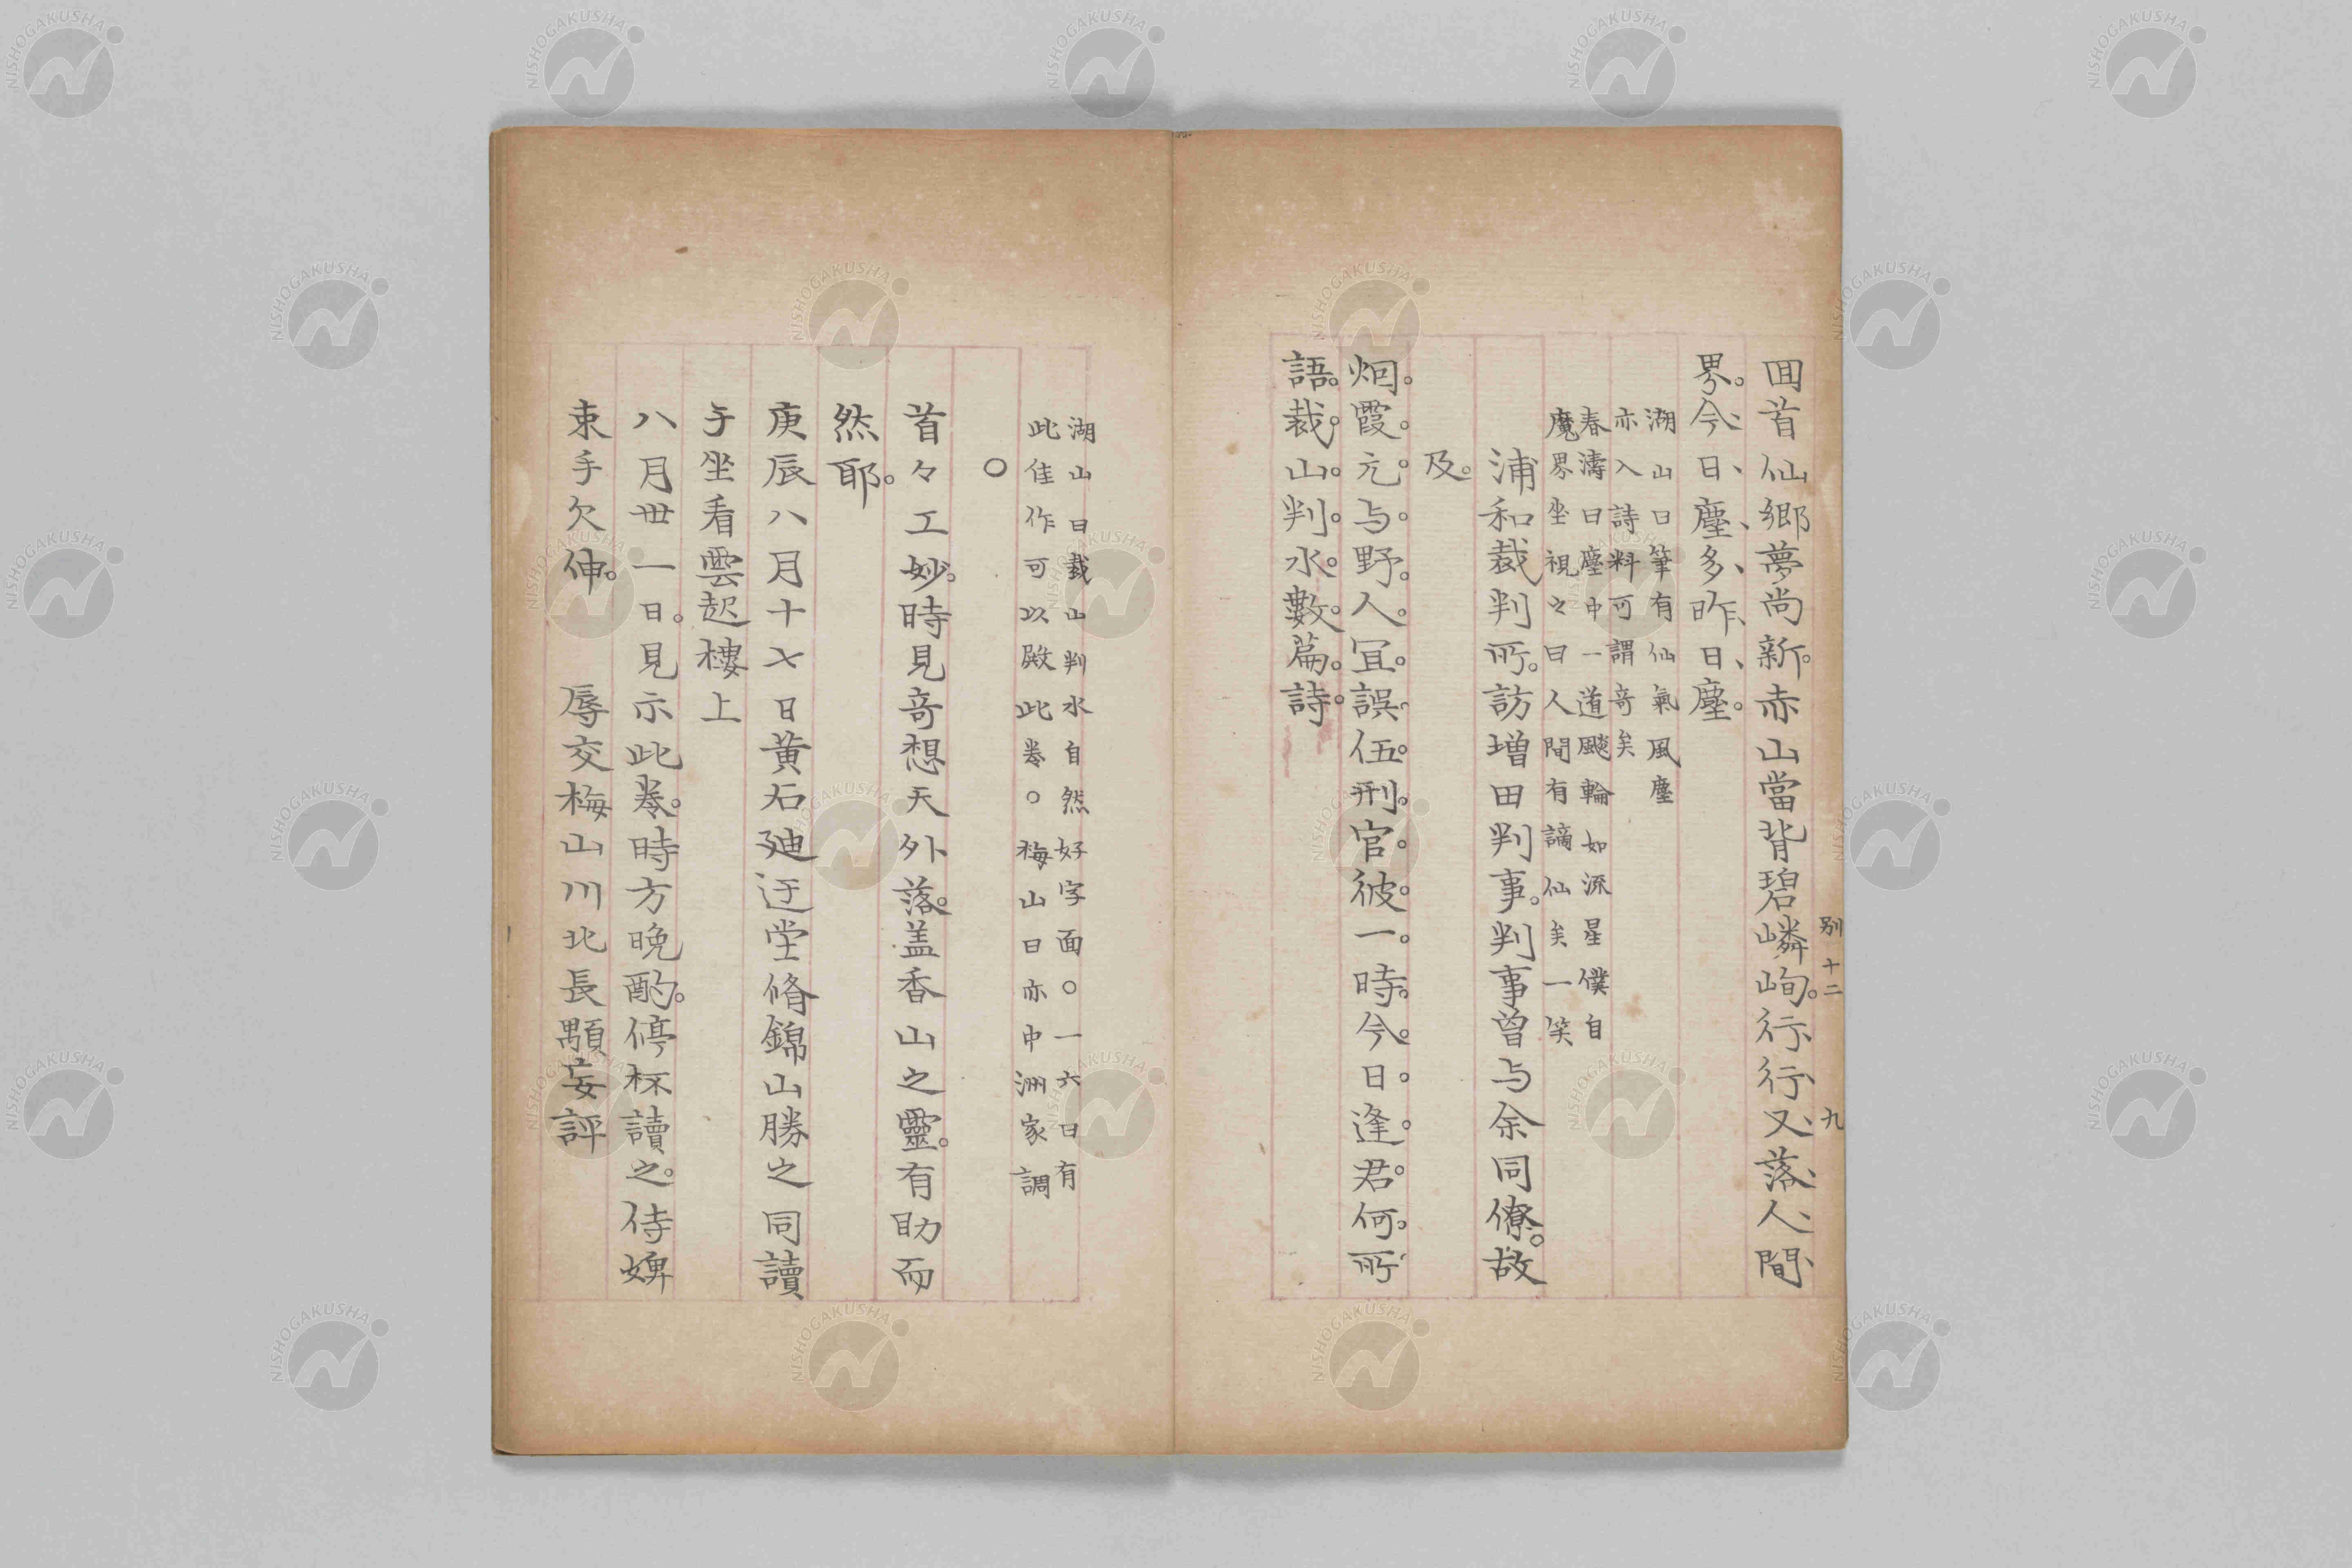 別十二 九
囬首仙郷夢尚新。赤山當背碧嶙峋。行、行、又、落、人、間、
界。今、日、塵、多、昨、日、塵。
湖山曰筆有仙氣風塵
亦入詩料可謂竒矣
春濤曰塵中一道颷輪如流星僕自
魔界坐視之曰人間有謫仙矣一笑
浦和裁判所。訪増田判事。判事曽与余同僚。故
及。
烟。霞。元。与。野。人。冝。誤。伍。刑。官。彼。一。時。今。日。逢。君。何。所
語。裁。山。判。水。數。篇。詩。
湖山曰裁山判水自然好字面〇一六曰有
此佳作可以殿此巻〇梅山曰亦中洲家調
〇
首々工妙。時見竒想天外落。盖香山之靈。有助而
然耶。
庚辰八月十七日黄石廸迂堂脩錦山勝之同讀
于坐看雲起樓上
八月丗一日。見示此巻。時方晩酌。停杯讀之。侍婢
束手欠伸。 辱交梅山川北長顒妄評
NISHOGAKUSHA